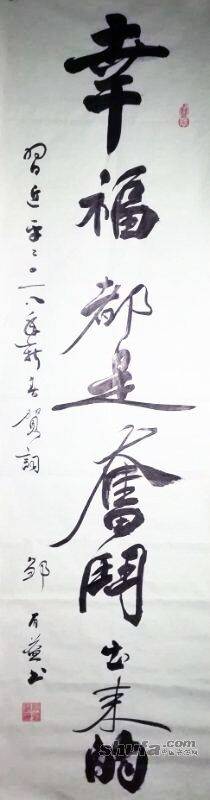 幸福都是奮鬥出来的
習近平二〇一八年新春賀詞
鄒
书
shufa.com